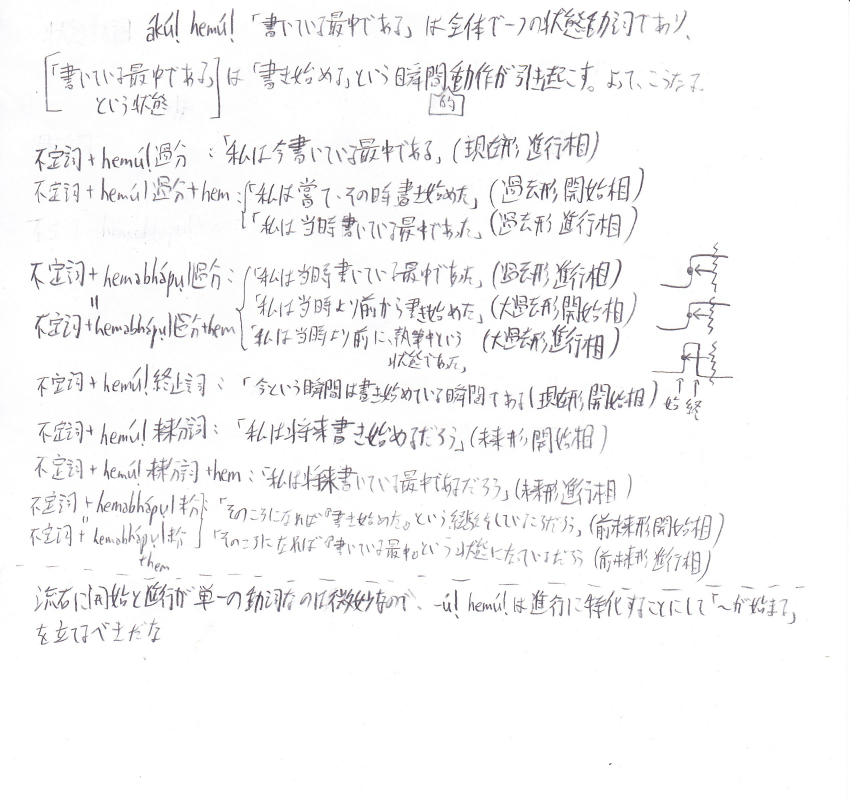 ákú! hemú!「書いている最中である」は全体で一つの状態動詞であり、
「書いている最中である」という状態 は「書き始める」という瞬間的動作が引き起こす。よって、こうなる。
不定詞 + hemú! 過分 : 「私は今書いている最中である」(現在形進行相)
不定詞 + hemú! 過分 + hem : 「私は嘗て、その時書き始めた」(過去形開始相)
「私は当時書いている最中であった」(過去形進行相)
不定詞 + hemabhápu! 過分 : 「私は当時書いている最中であった」(過去形進行相)
「私は当時より前から書き始めた」(大過去形開始相)
不定詞 + hemabhápu! 過分 + hem 「私は当時より前に、執筆中という状態であった」(大過去形進行相)
不定詞 + hemú! 終止詞 : 「今という瞬間は書き始めている瞬間である」(現在形開始相)
始 終
不定詞 + hemú! 未分詞 : 「私は将来書き始めるだろう」(未来形開始相)
不定詞 + hemú! 未分詞 + hem : 「私は将来書いている最中であるだろう」(未来形進行相)
不定詞 + hemabhápu! 未分 : 「そのころになれば『書き始めた』という経験をしているだろう」(前未来形開始相)
不定詞 + hemabhápu! 未分 + hem 「そのころになれば『書いている最中』という状態になっているだろう」(前未来形進行相)
流石に開始と進行が単一の動詞なのは微妙なので、-ú! hemú! は進行に特化することにして「～が始まる」
を立てるべきだな